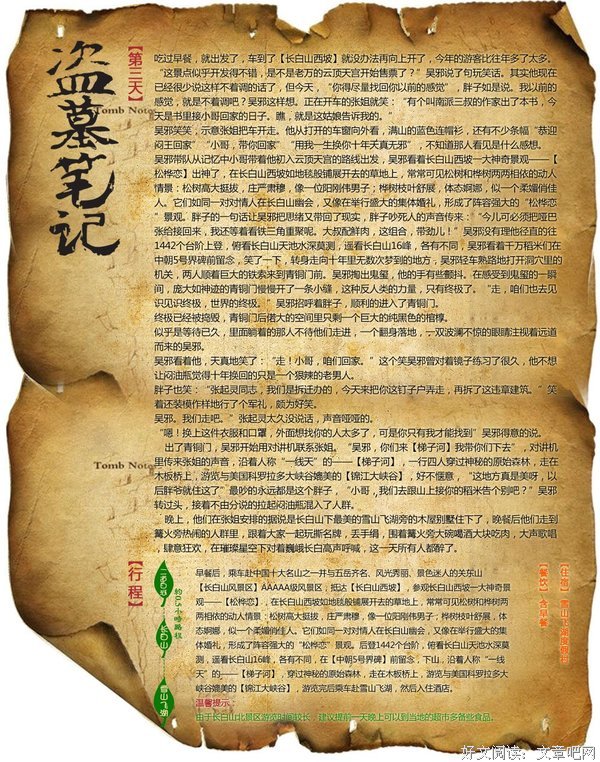 盗墓笔记
Tomb Notes
【第三天】
吃过早餐，就出发了，车到了【长白山西坡】就没办法再向上开了，今年的游客比往年多了太多。
“这景点似乎开发得不错，是不是老万的云顶天宫开始售票了？”吴邪说了句玩笑话。其实他现在
已经很少说这样不着调的话了，但今天，“你得尽量找回你以前的感觉”，胖子如是说。我以前的
感觉，就是不着调吧？吴邪这样想。正在开车的张姐就笑：“有个叫南派三叔的作家出了本书，今
天是书里接小哥回家的日子。瞧，就是这姑娘告诉我的。”
吴邪笑笑，示意张姐把车开走。他从打开的车窗向外看，满山的蓝色连帽衫，还有不少条幅“恭迎
闷王回家”“小哥，带你回家”“用我一生换你十年天真无邪”，不知道那人看见是什么感想。
吴邪带队从记忆中小哥带着他初入云顶天宫的路线出发，吴邪看着长白山西坡一大神奇景观——【
松桦恋】出神了，在长白山西坡如地毯般铺展开去的草地上，常常可见松树和桦树两两相依的动人
情景：松树高大挺拔，庄严肃穆，像一位阳刚伟男子；桦树枝叶舒展，体态婀娜，似一个柔媚俏佳
人。它们如同一对对情人在长白山幽会，又像在举行盛大的集体婚礼，形成了阵容强大的“松桦恋
”景观。胖子的一句话让吴邪把思绪又带回了现实，胖子吵死人的声音传来：“今儿可必须把哑巴
张给接回来，我还等着看铁三角重聚呢。大叔配鲜肉，这组合，带劲儿！”吴邪没有理他径直的往
1442个台阶上登，俯看长白山天池水深莫测，遥看长白山16峰，各有不同，吴邪看着千万稻米们在
中朝5号界碑前留念，笑了一下，转身走向十年里无数次梦到的地方，吴邪轻车熟路地打开洞穴里的
机关，两人顺着巨大的铁索来到青铜门前。吴邪掏出鬼玺，他的手有些颤抖。在感受到鬼玺的一瞬
间，庞大如神迹的青铜门慢慢开了一条小缝，这种反人类的力量，只有终极了。“走，咱们也去见
识见识终极，世界的终极。”吴邪招呼着胖子，顺利的进入了青铜门。
终极已经被捣毁，青铜门后偌大的空间里只剩一个巨大的纯黑色的棺椁。
似乎是等待已久，里面躺着的那人不待他们走进，一个翻身落地，一双波澜不惊的眼睛注视着远道
而来的吴邪。
吴邪看着他，天真地笑了：“走！小哥，咱们回家。”这个笑吴邪曾对着镜子练习了很久，他不想
让闷油瓶觉得十年换回的只是一个狠辣的老男人。
胖子也笑：“张起灵同志，我们是拆迁办的，今天来把你这钉子户弄走，再拆了这违章建筑。”笑
着还装模作样地行了个军礼，颇为好笑。
吴邪。我们走吧。”张起灵太久没说话，声音哑哑的。
“嗯！换上这件衣服和口罩，外面想找你的人太多了，可是你只有我才能找到”吴邪得意的说。
出了青铜门，吴邪开始用对讲机联系张姐。“吴邪，你们来【梯子河】我带你们下去”，对讲机
里传来张姐的声音，沿着人称“一线天”的——【梯子河】，一行四人穿过神秘的原始森林，走在
木板桥上，游览与美国科罗拉多大峡谷媲美的【锦江大峡谷】，好不惬意，“这地方真是美呀，以
后胖爷就住这了”最吵的永远都是这个胖子，“小哥，我们去跟山上接你的稻米告个别吧？”吴邪
转过头，接着不由分说的拉起闷油瓶混入了人群。
晚上，他们在张姐安排的据说是长白山下最美的雪山飞湖旁的木屋别墅住下了，晚餐后他们走到
篝火旁热闹的人群里，跟着大家一起玩撕名牌，丢手绢，围着篝火旁大碗喝酒大块吃肉，大声歌唱
，肆意狂欢，在璀璨星空下对着巍峨长白高声呼喊，这一天所有人都醉了。
Tomb Notes
【行程】
二道白河
约0.5小时路程
长白山
雪山飞湖
早餐后，乘车赴中国十大名山之一并与五岳齐名、风光秀丽、景色迷人的关东山
【长白山风景区】AAAAA级风景区；抵达【长白山西坡】，参观长白山西坡一大神奇景
观——【松桦恋】，在长白山西坡如地毯般铺展开去的草地上，常常可见松树和桦树两
两相依的动人情景：松树高大挺拔，庄严肃穆，像一位阳刚伟男子；桦树枝叶舒展，体
态婀娜，似一个柔媚俏佳人。它们如同一对对情人在长白山幽会，又像在举行盛大的集
体婚礼，形成了阵容强大的“松桦恋”景观。后登1442个台阶，俯看长白山天池水深莫
测，遥看长白山16峰，各有不同，在【中朝5号界碑】前留念，下山，沿着人称“一线
天”的——【梯子河】，穿过神秘的原始森林，走在木板桥上，游览与美国科罗拉多大
峡谷媲美的【锦江大峡谷】，游览完后乘车赴雪山飞湖，然后入住酒店。
温馨提示：
由于长白山北景区游览时间较长，建议提前一天晚上可以到当地的超市多备些食品。
【住宿】雪山飞湖度假村
【餐饮】含早餐
好文阅读：文章吧网